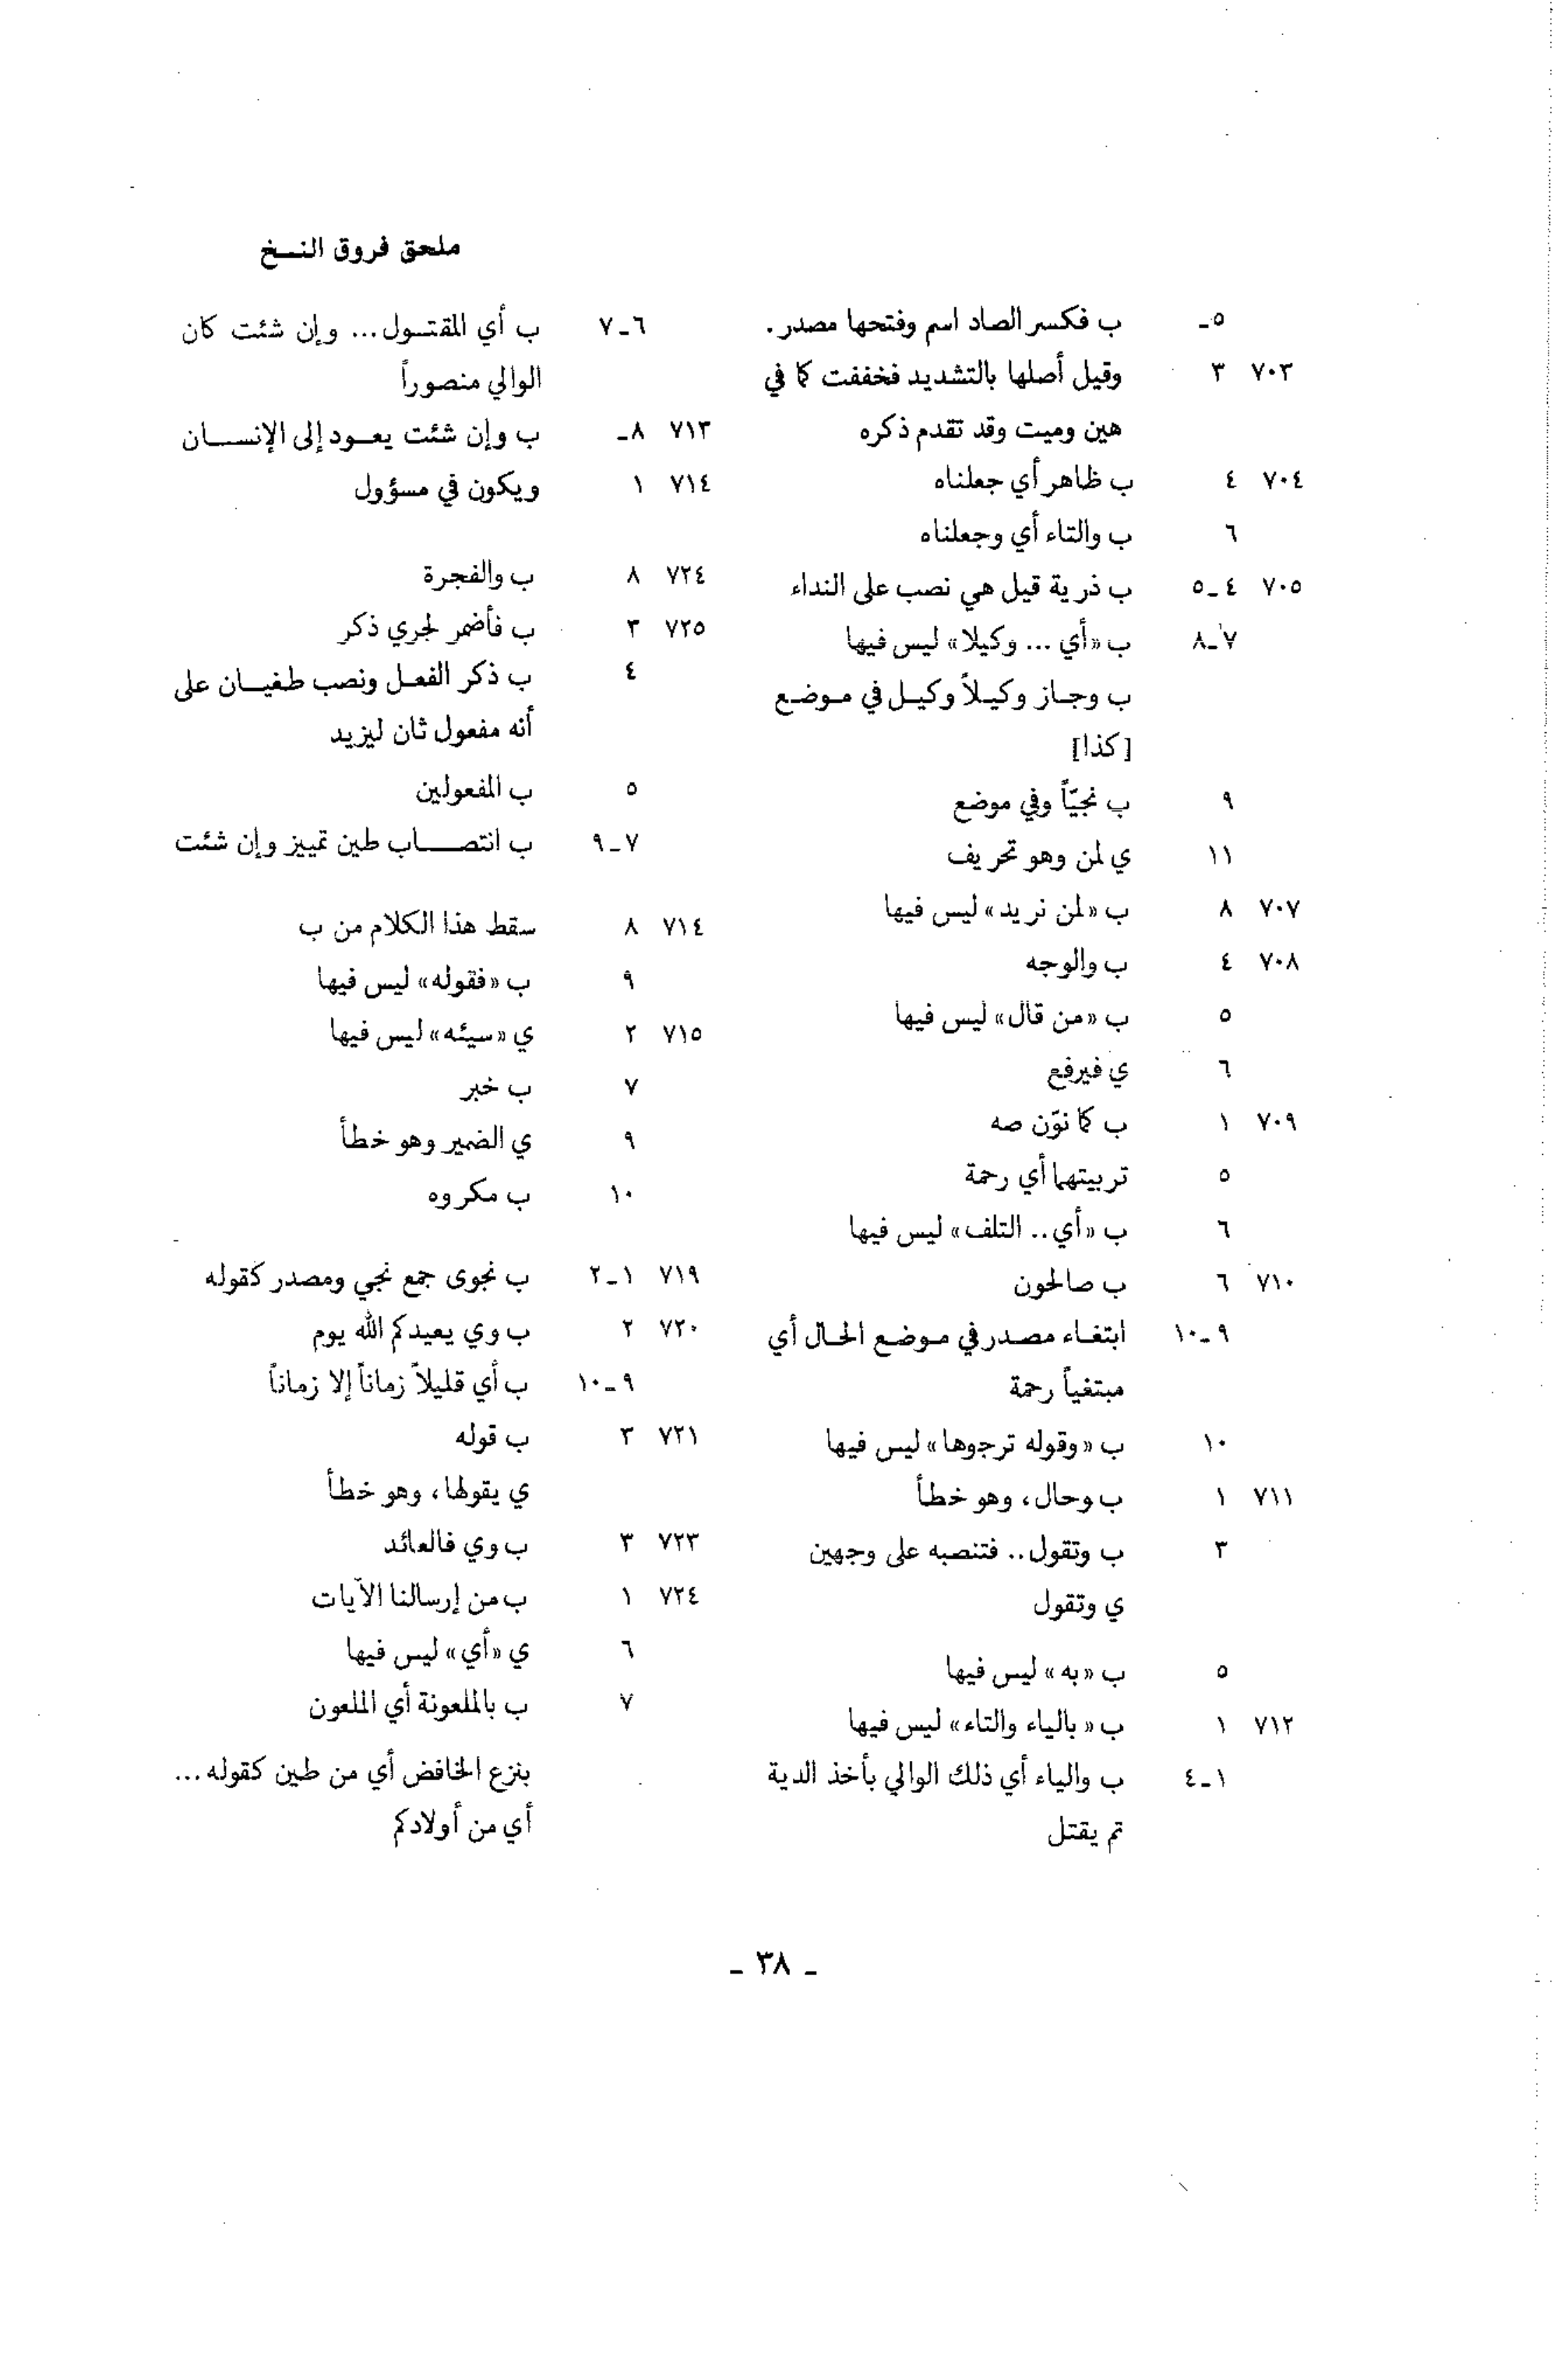 ملحق فروق النسخ
٥ـ ب فكسر الصاد اسم وفتحها مصدر.
٧٠٣ ٣ وقيل أصلها بالتشديد فخففت كما في
هين وميت وقد تقدم ذكره
٧٠٤ ٤ ب ظاهر أي جعلناه
٦ ب والتاء أي وجعلناه
٧٠٥ ٤ـ٥ ب ذرية قيل هي نصب على النداء
٧ـ٨ ب «أي ... وكيلا» ليس فيها
ب وجاز وكيلاً وكيل في موضع
[كذا]
٩ ب نجيّاً وفي موضع
١١ ي لمن وهو تحريف
٧٠٧ ٨ ب «لمن نريد» ليس فيها
٧٠٨ ٤ ب والوجه
٥ ب «من قال» ليس فيها
٦ ي فيرفع
٧٠٩ ١ ب كما نوّن صه
٥ تربيتهما أي رحمة
٦ ب «أي.. التلف» ليس فيها
٧١٠ ٦ ب صالحون
٩ـ١٠ ابتغاء مصدر في موضع الحال أي
مبتغياً رحمة
١٠ ب «وقوله ترجوها» ليس فيها
٧١١ ١ ب وحال، وهو خطأ
٣ ب وتقول.. فتنصبه على وجهين
ي وتقول
٥ ب «به» ليس فيها
٧١٢ ١ ب «بالياء والتاء» ليس فيها
١ـ٤ ب والياء أي ذلك الوالي بأخذ الدية
تم يقتل
٦ـ٧ ب أي المقتول... وإن شئت كان
الوالي منصوراً
٧١٣ ٨ـ ب وإن شئت يعود إلى الإنسان
٧١٤ ١ ويكون في مسؤول
٧٢٤ ٨ ب والفجرة
٧٢٥ ٣ ب فأضمر لجري ذكر
٤ ب ذكر الفعل ونصب طغيان على
أنه مفعول ثان ليزيد
٥ ب المفعولين
٧ـ٩ ب انتصاب طين تمييز وإن شئت
٧١٤ ٨ سقط هذا الكلام من ب
٩ ب «فقوله» ليس فيها
٧١٥ ٢ ي «سيئه» ليس فيها
٧ ب خبر
٩ ي الضمير وهو خطأ
١٠ ب مكروه
٧١٩ ١ـ٢ ب نجوى جمع نجي ومصدر كقوله
٧٢٠ ٢ ب وي يعيدكم الله يوم
٩ـ١٠ ب أي قليلاً زماناً إلا زماناً
٧٢١ ٣ ب قوله
ي يقولها، وهو خطأ
٧٢٣ ٣ ب وي فالعائد
٧٢٤ ١ ب من إرسالنا الآيات
٦ ي «أي» ليس فيها
٧ ب بالملعونة أي الملعون
بنزع الخافض أي من طين كقوله...
أي من أولادكم
ـ ٣٨ ـ